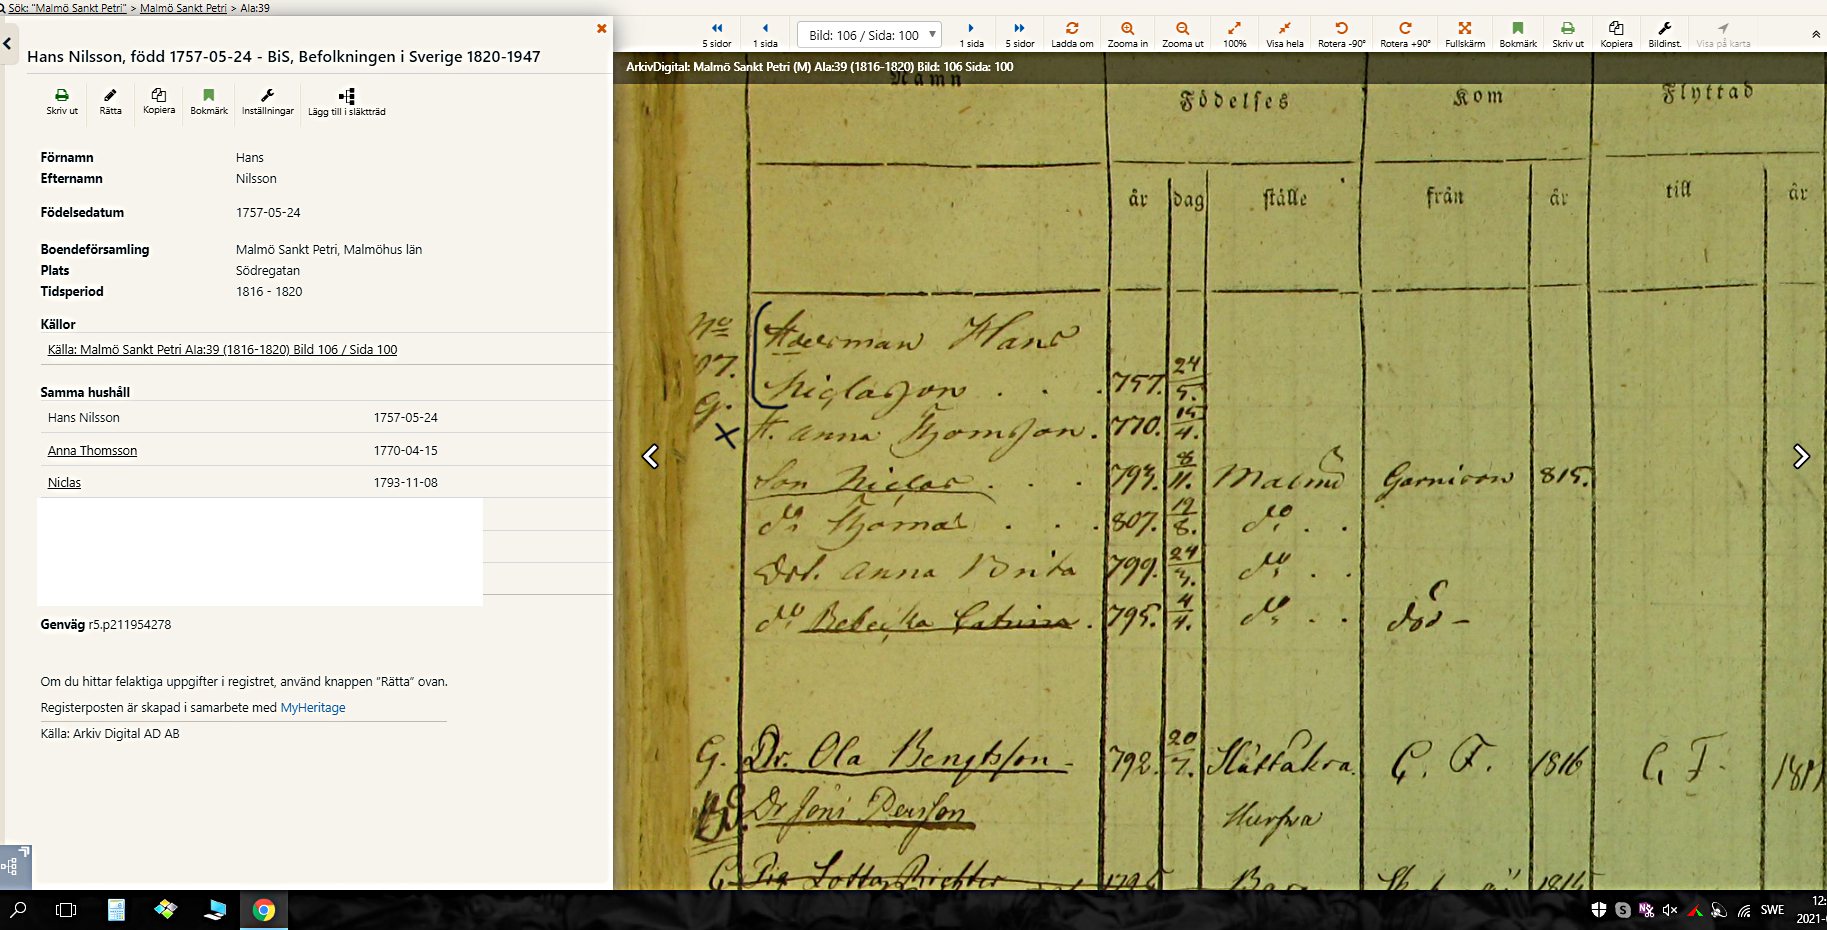 Sök: "Malmö Sankt Petri" > Malmö Sankt Petri > AIa:39
Hans Nilsson, född 1757-05-24 - BiS, Befolkningen i Sverige 1820-1947
Skriv ut Rätta Kopiera Bokmärk Inställningar Lägg till i släktträd
Förnamn Hans
Efternamn Nilsson
Födelsedatum 1757-05-24
Boendeförsamling Malmö Sankt Petri, Malmöhus län
Plats Södregatan
Tidsperiod 1816 - 1820
Källor
Källa: Malmö Sankt Petri AIa:39 (1816-1820) Bild 106 / Sida 100
Samma hushåll
Hans Nilsson 1757-05-24
Anna Thomsson 1770-04-15
Niclas 1793-11-08
Genväg r5.p211954278
Om du hittar felaktiga uppgifter i registret, använd knappen "Rätta" ovan.
Registerposten är skapad i samarbete med MyHeritage
Källa: Arkiv Digital AD AB
5 sidor 1 sida Bild: 106 / Sida: 100 1 sida 5 sidor Ladda om Zooma in Zooma ut 100% Visa hela Rotera -90° Rotera +90° Fullskärm Bokmärk Skriv ut Kopiera Bildinst. Visa på karta
ArkivDigital: Malmö Sankt Petri (M) AIa:39 (1816-1820) Bild: 106 Sida: 100
Namn Födelses Kom Flyttad
år dag ställe från år till år
No Åderman Hans
Niclasson . . . 757. 24/5.
G.
H. Anna Thomsson. 770. 15/4.
Son Niclas . . . 793. 8/11. Malmö Garnison 815.
do Thomas . . . 807. 12/8. do . .
Dot. Anna Brita 799. 24/3. do . .
do Rebecka Catrina . 795. 4/4. do . . död -
G. Dr. Ola Bengtsson - 792. 20/7. Slättåkra. C. F. 1816 C. F.
Dr Jöns Persson Hurfva
G. Pig Lotta Richter
SWE
12:
2021-